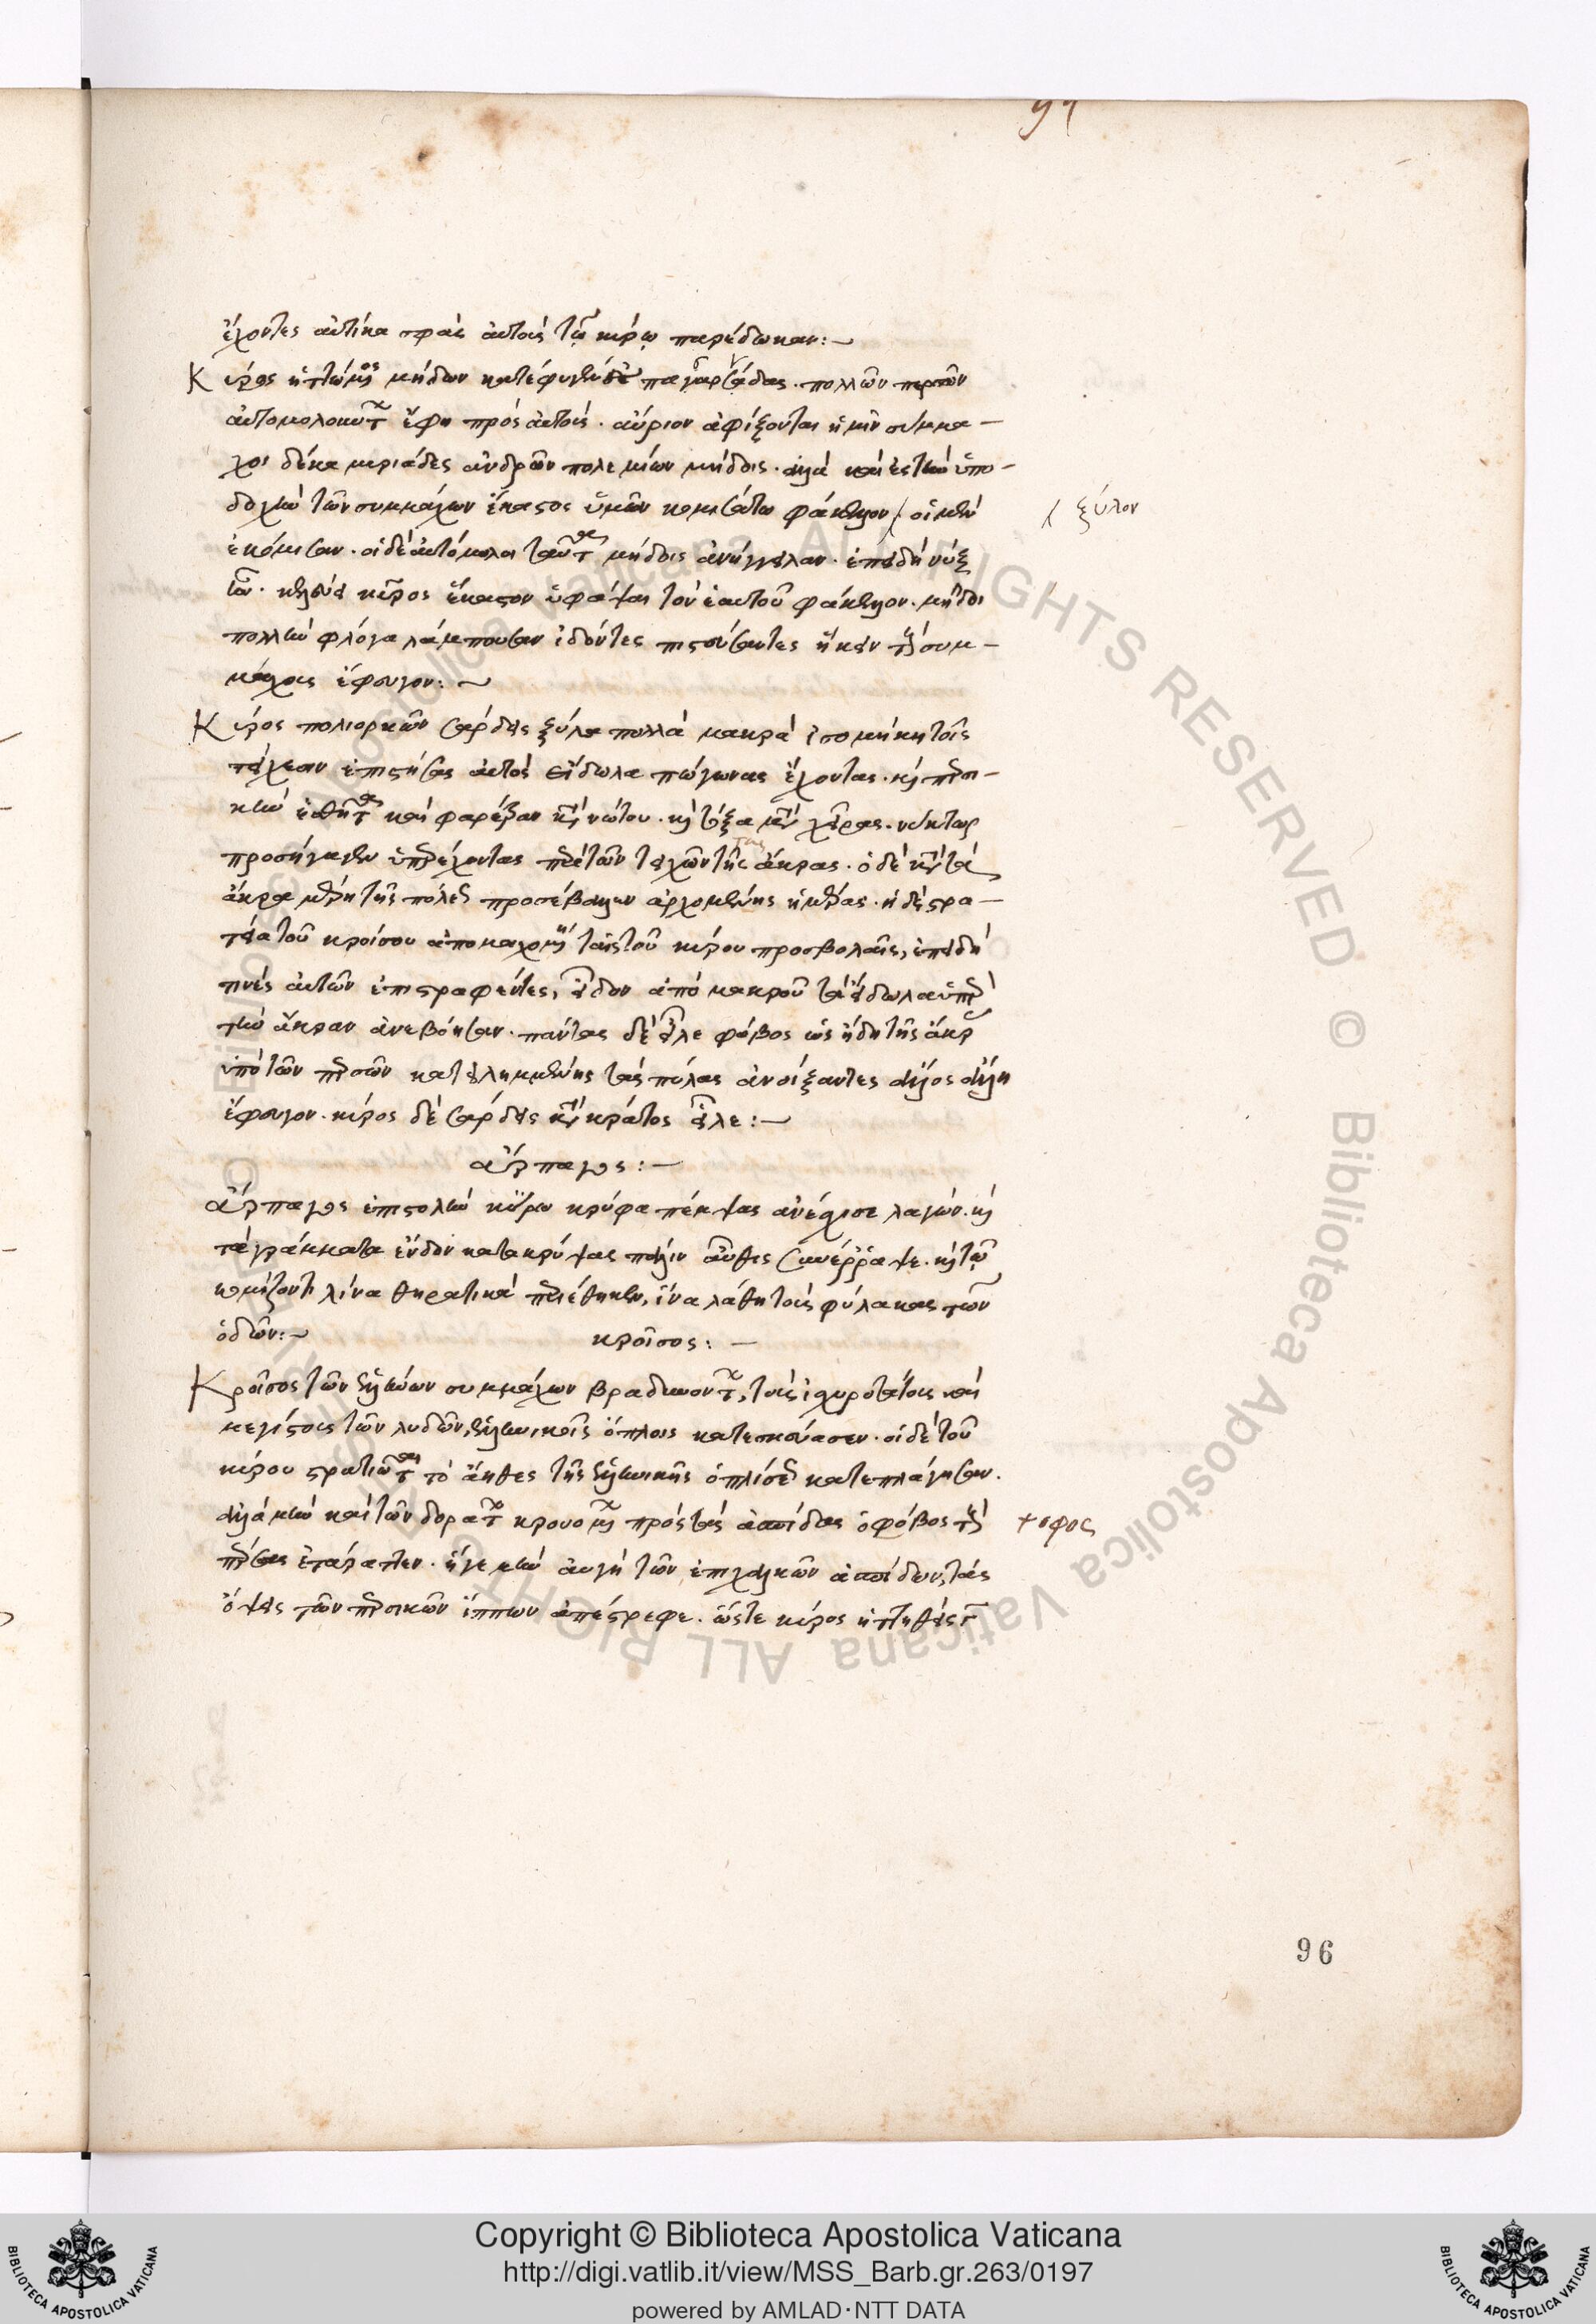 91
ἔχοντες αὐτίκα σφᾶς αὐτοὺς τῷ κύρῳ παρέδωκαν:—
Κύρος ἡττώμενος μήδων κατέφυγεν πασαργάδας. πολλῶν περσῶν
αὐτομολούντων ἔφη πρὸς αὐτούς. αὔριον ἀφίξονται ἡμῖν συμμα—
χοι δέκα μυριάδες ἀνδρῶν πολεμίων μήδοις. ἀλλὰ καὶ ἐς τὴν ὑπο—
δοχὴν τῶν συμμάχων ἕκαστος ὑμῶν κομισάτω φάκελλον / οἱ μὲν
/ ξύλον
ἐκόμισαν. οἱ δὲ αὐτόμολοι ταῦτα μήδοις ἀνήγγειλαν. ἐπειδὴ νὺξ
ἦν. κελεύει κῦρος ἕκαστον ὑφάψαι τὸν ἑαυτοῦ φάκελλον. μῆδοι
πολλὴν φλόγα λάμπουσαν ἰδόντες πιστεύσαντες ἥκειν τοὺς συμ—
μάχους ἔφευγον:—
Κύρος πολιορκῶν σάρδεις ξύλα πολλὰ μακρὰ ἰσομήκη τοῖς
τείχεσιν ἐπιστήσας αὐτοῖς εἴδωλα πώγωνας ἔχοντας. καὶ περσι—
κὴν ἐσθῆτα καὶ φαρέτραν κατὰ νώτου. καὶ τόξα μετὰ χεῖρας. νύκτωρ
προσήγαγεν ὑπερέχοντας ὑπὲρ τῶν τειχῶν τῆς ἄκρας. ὁ δὲ κατὰ τὰ
ἄκρα μέρη τῆς πόλεως προσέβαλλεν ἀρχομένης ἡμέρας. ἡ δὲ στρα—
τεία τοῦ κροίσου ἀπομαχομένη ταῖς τοῦ κύρου προσβολαῖς, ἐπειδή
τινες αὐτῶν ἐπιστραφέντες, εἶδον ἀπὸ μακροῦ τὰ εἴδωλα ὑπὲρ
τὴν ἄκραν ἀνεβόησαν. πάντας δὲ εἷλε φόβος ὡς ἤδη τῆς ἄκρας
ὑπὸ τῶν περσῶν κατειλημμένης τὰς πύλας ἀνοίξαντες ἄλλος ἄλλη
ἔφευγον. κύρος δὲ σάρδεις κατὰ κράτος εἷλε:—
ἅρπαγος:—
ἅρπαγος ἐπιστολὴν κύρω κρύφα πέμψας ἀνέσχισε λαγών. καὶ
τὰ γράμματα ἔνδον κατακρύψας πάλιν αὖθις συνέρραψε. καὶ τῷ
κομίζοντι λίνα θηρατικὰ περιέθηκεν, ἵνα λάθη τοὺς φύλακας τῶν
ὁδῶν:—
κροῖσος:—
Κροῖσος τῶν ἑλλήνων συμμάχων βραδυνόντων, τοὺς ἰσχυροτάτους καὶ
μεγίστους τῶν λυδῶν, ἑλληνικοῖς ὅπλοις κατεσκεύασεν. οἱ δὲ τοῦ
κύρου στρατιῶται τὸ ἄηθες τῆς ἑλληνικῆς ὁπλίσεως κατεπλάγησαν.
ἀλλὰ μὴν καὶ τῶν δοράτων κρουομένων πρὸς τὰς ἀσπίδας ὁ φόβος τοὺς
+ οφος
πέρσας ἐτάραττεν. ἥ γε μὴν αὐγὴ τῶν ἐπιχάλκων ἀσπίδων, τὰς
ὄψεις τῶν περσικῶν ἵππων ἀπέστρεφε. ὥστε κύρος ἡττηθεὶς
96
Copyright © Biblioteca Apostolica Vaticana
http://digi.vatlib.it/view/MSS_Barb.gr.263/0197
powered by AMLAD·NTT DATA